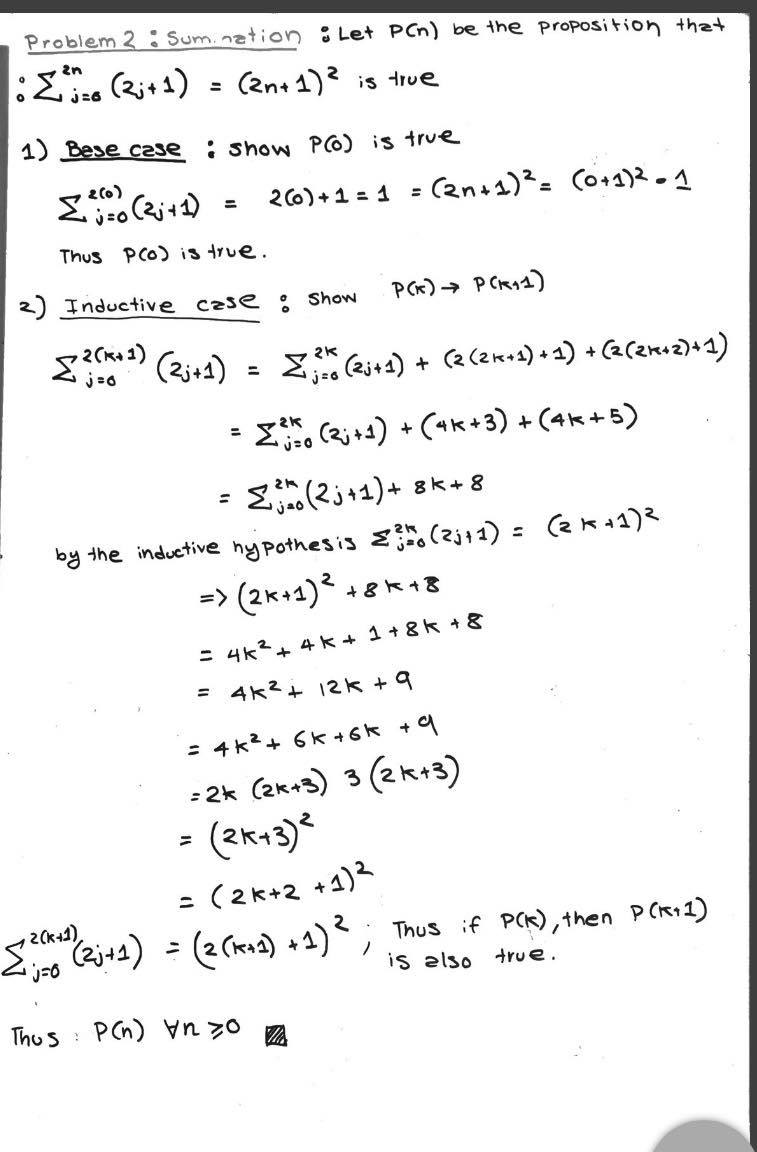 Problem 2 : Summation : Let P(n) be the proposition that
: Σ_{j=0}^{2n} (2j+1) = (2n+1)² is true
1) Base case : show P(0) is true
Σ_{j=0}^{2(0)} (2j+1) = 2(0)+1 = 1 = (2n+1)² = (0+1)² = 1
Thus P(0) is true.
2) Inductive case : show P(k) → P(k+1)
Σ_{j=0}^{2(k+1)} (2j+1) = Σ_{j=0}^{2k} (2j+1) + (2(2k+1)+1) + (2(2k+2)+1)
= Σ_{j=0}^{2k} (2j+1) + (4k+3) + (4k+5)
= Σ_{j=0}^{2k} (2j+1) + 8k+8
by the inductive hypothesis Σ_{j=0}^{2k} (2j+1) = (2k+1)²
=> (2k+1)² + 8k+8
= 4k² + 4k + 1 + 8k + 8
= 4k² + 12k + 9
= 4k² + 6k + 6k + 9
= 2k (2k+3) 3 (2k+3)
= (2k+3)²
= (2k+2 +1)²
Σ_{j=0}^{2(k+1)} (2j+1) = (2(k+1) +1)² ; Thus if P(k), then P(k+1)
is also true.
Thus : P(n) ∀n ≥0 ▨